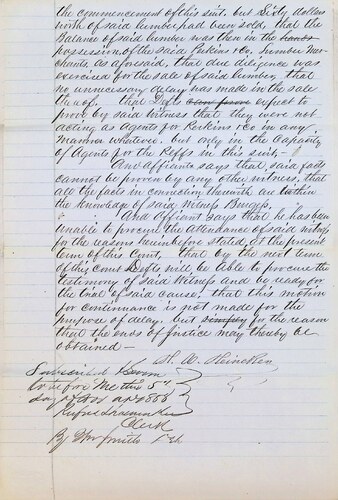 the commencement of this suit. but Sixty dollars
worth of said lumber had been sold, that the
Balance of said lumber was then in the hands
possession of the said Perkins & Co. Lumber Mer-
chants. as aforesaid, that due diligence was
exercised for the sale of said lumber, that
no unnecessary delay has made in the sale
thereof. that Defts expect to
prove by said witness that they were not
acting as Agents for Perkins & Co in any
Manner whatever. but only in the Capacity
of Agents for the Plffs in this suit, -
And Affiants says that said facts
cannot be proven by any other witness, that
all the facts in connection therewith are within
the Knowledge of said witness Burgess,
And Affiant says that he has been
unable to procure the attendance of said witness
for the reasons hereinbefore stated, at the present
term of this Court, that by the next term
of this Court Defts will be Able to procure the
testimony of said Witness and be ready for
the trial of said cause, that this motion
for continuance is not made for the
purpose of delay but for the reason
that the ends of Justice may thereby be
obtained -
H. W.
Subscribed & Sworn
to before me this 5th
day of
Clerk
By Wm Smith